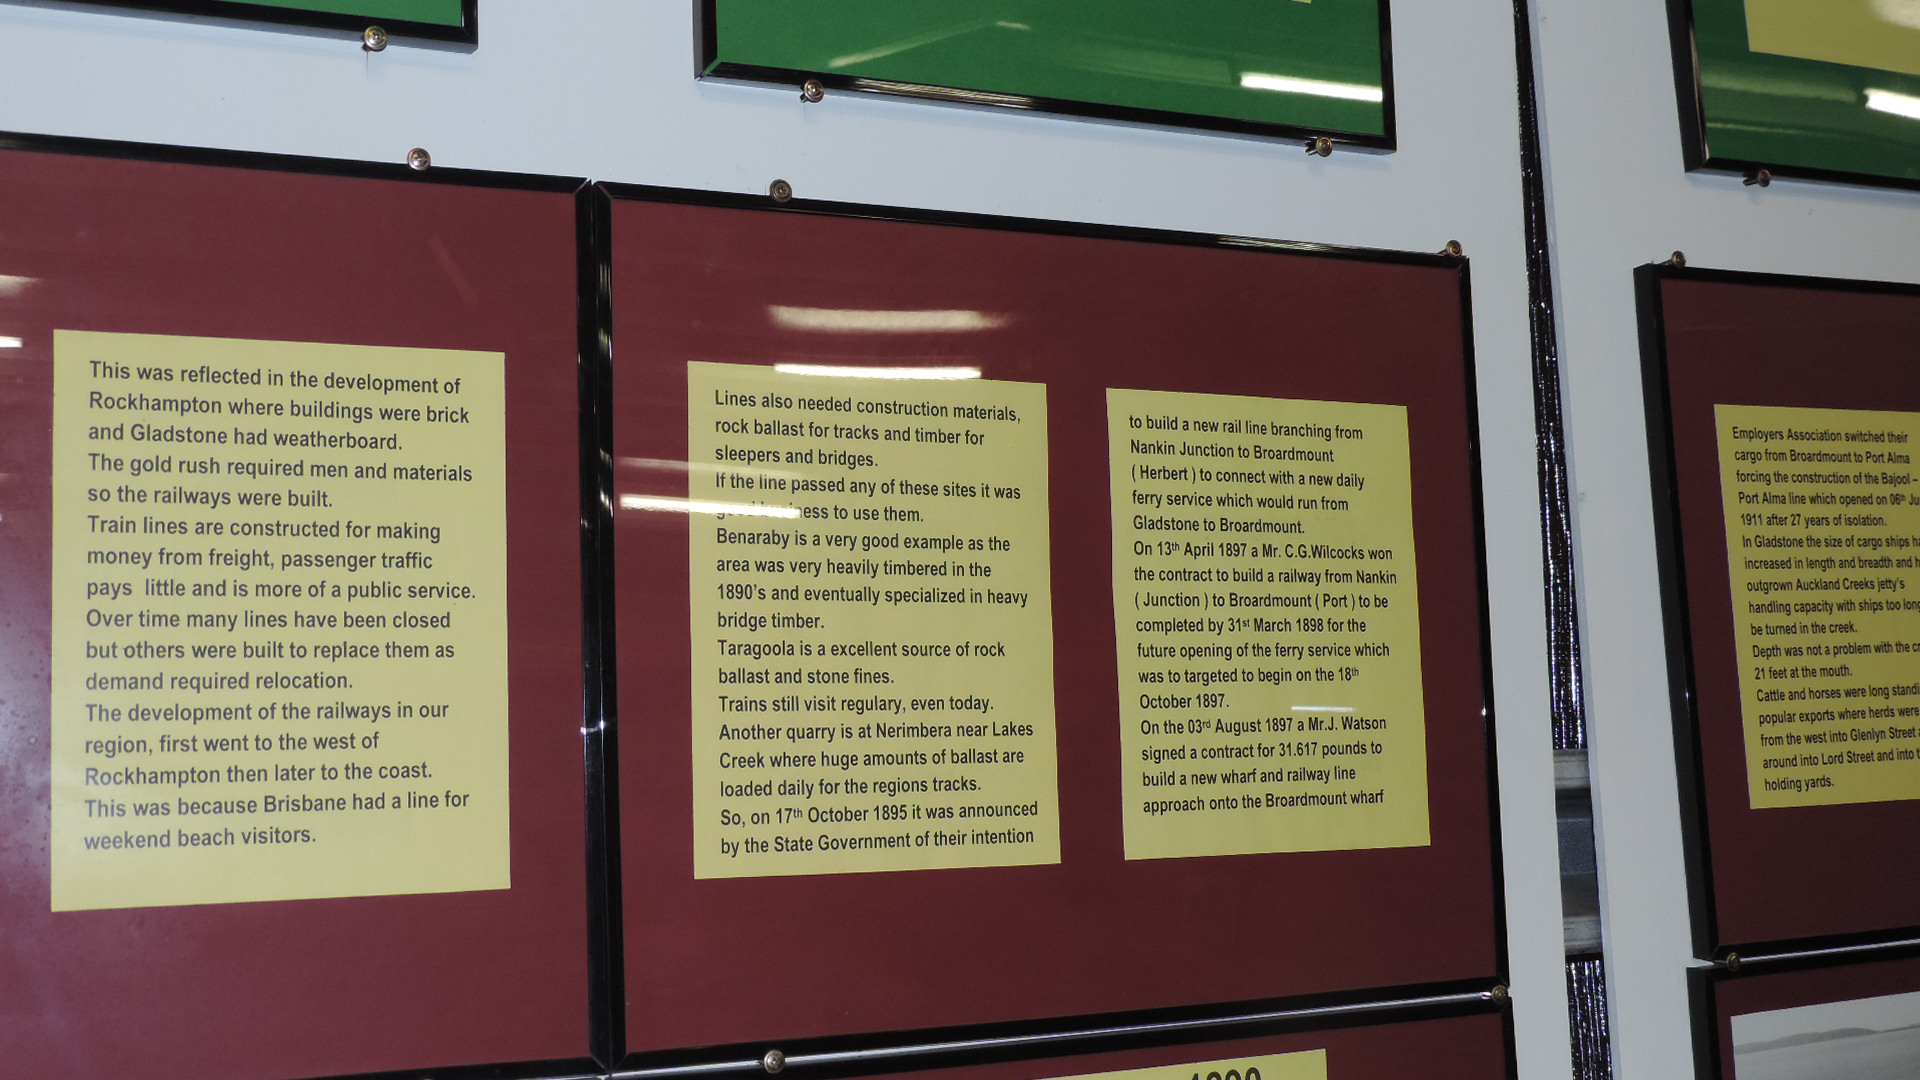 This was reflected in the development of
Rockhampton where buildings were brick
and Gladstone had weatherboard.
The gold rush required men and materials
so the railways were built.
Train lines are constructed for making
money from freight, passenger traffic
pays little and is more of a public service.
Over time many lines have been closed
but others were built to replace them as
demand required relocation.
The development of the railways in our
region, first went to the west of
Rockhampton then later to the coast.
This was because Brisbane had a line for
weekend beach visitors.
Lines also needed construction materials,
rock ballast for tracks and timber for
sleepers and bridges.
If the line passed any of these sites it was
good business to use them.
Benaraby is a very good example as the
area was very heavily timbered in the
1890's and eventually specialized in heavy
bridge timber.
Taragoola is a excellent source of rock
ballast and stone fines.
Trains still visit regulary, even today.
Another quarry is at Nerimbera near Lakes
Creek where huge amounts of ballast are
loaded daily for the regions tracks.
So, on 17th October 1895 it was announced
by the State Government of their intention
to build a new rail line branching from
Nankin Junction to Broardmount
( Herbert ) to connect with a new daily
ferry service which would run from
Gladstone to Broardmount.
On 13th April 1897 a Mr. C.G.Wilcocks won
the contract to build a railway from Nankin
( Junction ) to Broardmount ( Port ) to be
completed by 31st March 1898 for the
future opening of the ferry service which
was to targeted to begin on the 18th
October 1897.
On the 03rd August 1897 a Mr.J. Watson
signed a contract for 31.617 pounds to
build a new wharf and railway line
approach onto the Broardmount wharf
Employers Association switched their
cargo from Broardmount to Port Alma
forcing the construction of the Bajool –
Port Alma line which opened on 06th
1911 after 27 years of isolation.
In Gladstone the size of cargo ships
increased in length and breadth and
outgrown Auckland Creeks jetty's
handling capacity with ships too long
be turned in the creek.
Depth was not a problem with the
21 feet at the mouth.
Cattle and horses were long
popular exports where herds were
from the west into Glenlyn Street
around into Lord Street and into
holding yards.